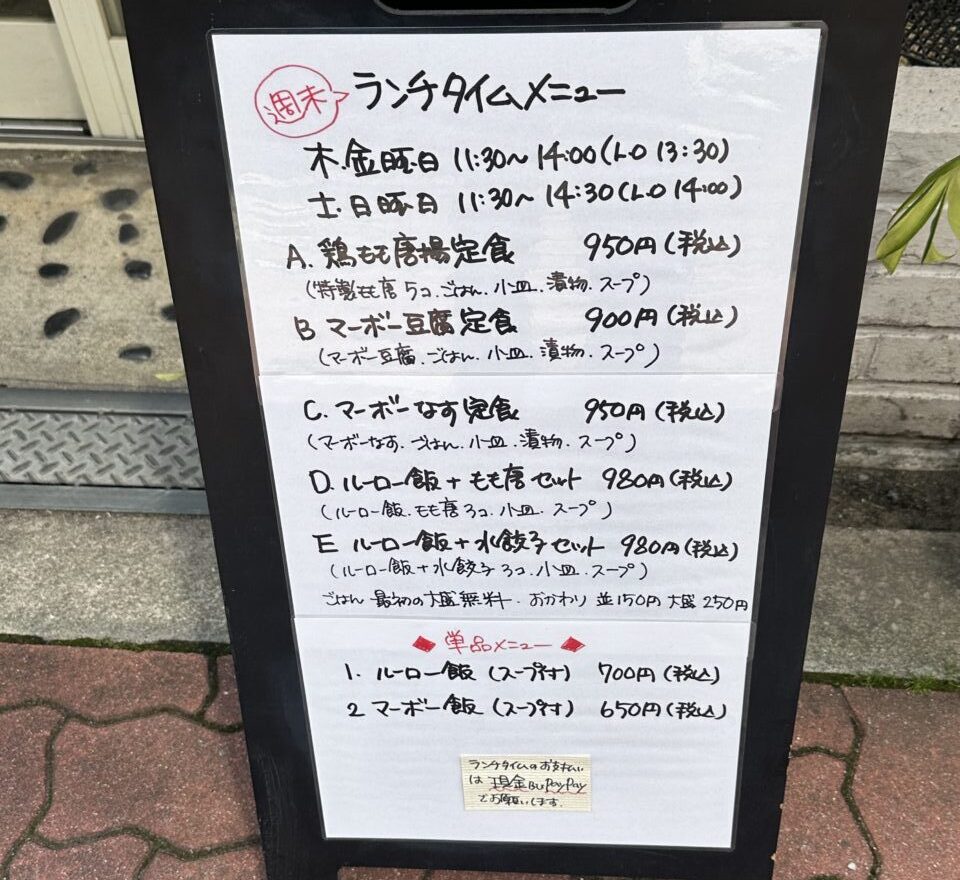 週末 ランチタイムメニュー
木・金曜日 11:30～14:00(L.O 13:30)
土・日曜日 11:30～14:30(L.O 14:00)
A. 鶏もも唐揚定食 950円(税込)
(特製もも唐5コ、ごはん、小皿、漬物、スープ)
B マーボー豆腐定食 900円(税込)
(マーボー豆腐、ごはん、小皿、漬物、スープ)
C. マーボーなす定食 950円(税込)
(マーボーなす、ごはん、小皿、漬物、スープ)
D. ルーロー飯+もも唐セット 980円(税込)
(ルーロー飯、もも唐3コ、小皿、スープ)
E ルーロー飯+水餃子セット 980円(税込)
(ルーロー飯+水餃子3コ、小皿、スープ)
ごはん 最初の大盛無料、おかわり 並150円 大盛250円
◆ 単品メニュー ◆
1. ルーロー飯 (スープ付) 700円(税込)
2 マーボー飯 (スープ付) 650円(税込)
ランチタイムのお支払い
は 現金又はPayPay
でお願いします。